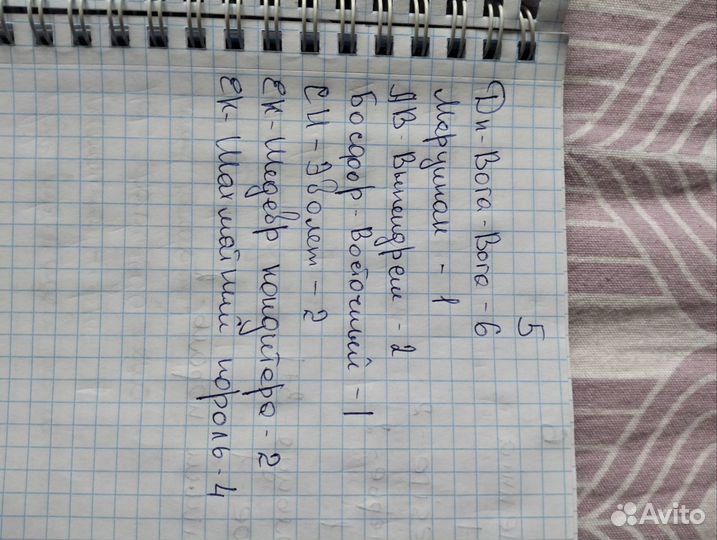 5
Дп-Вога-Вога-6
Марципан - 1
АВ-Выпендреж - 2
Босфор-Восточный-1
СИ-Эполет-2
ЕК-Шедевр кондитера-2
ЕК-Шахматный король-4
Avito